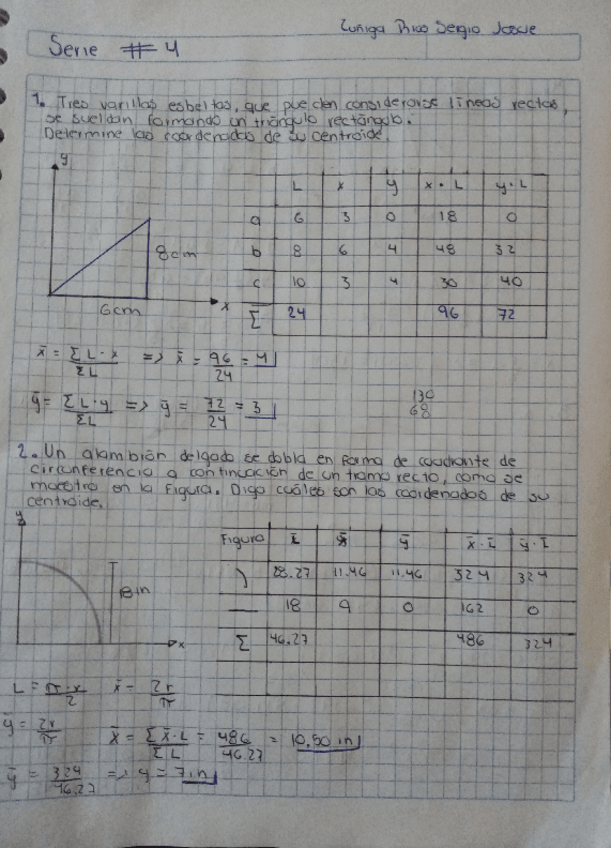 Zuñiga Rico Sergio Josue
Serie # 4
1. Tres varillas esbeltas, que pueden considerarse líneas rectas,
se sueldan formando un triángulo rectángulo.
Determine las coordenadas de su centroide.
y
L x y x · L y · L
a 6 3 0 18 0
b 8 6 4 48 32
c 10 3 4 30 40
Σ 24 96 72
8cm
6cm
x
x̄ = ΣL·x / ΣL => x̄ = 96/24 = 4
ȳ = ΣL·y / ΣL => ȳ = 72/24 = 3
130
68
2. Un alambrón delgado se dobla en forma de cuadrante de
circunferencia a continuación de un tramo recto, como se
muestra en la figura. Diga cuáles son las coordenadas de su
centroide.
y
Figura L̄ x̄ ȳ x̄·L̄ ȳ·L̄
) 28.27 11.46 11.46 324 324
— 18 9 0 162 0
Σ 46.27 486 324
18in
x
L = π·r/2 x̄ = 2r/π
ȳ = 2r/π x̄ = Σx̄·L / ΣL = 486/46.27 = 10.50 in
ȳ = 324/46.27 => y = 7in